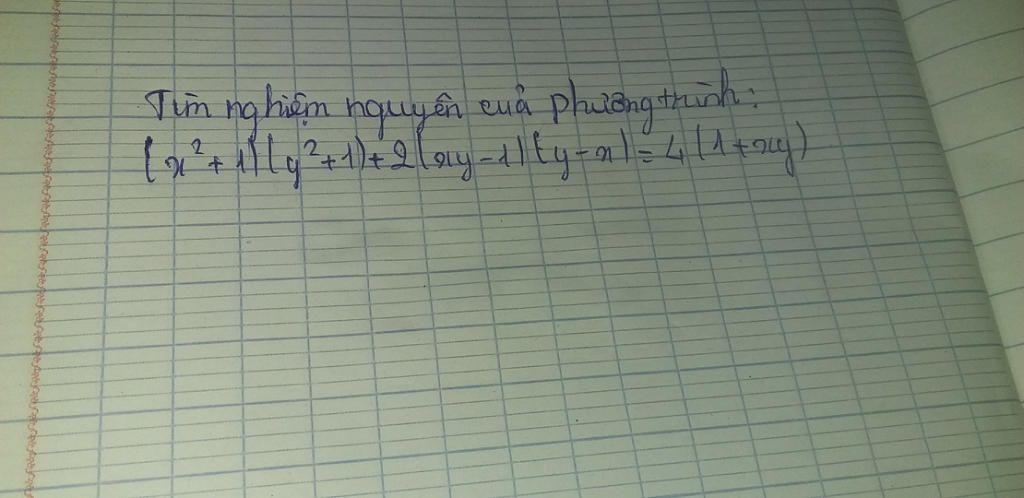 Tìm nghiệm nguyên của phương trình:
(x² + 1)(y² + 1) + 2(xy - 1)(y - x) = 4(1 + xy)